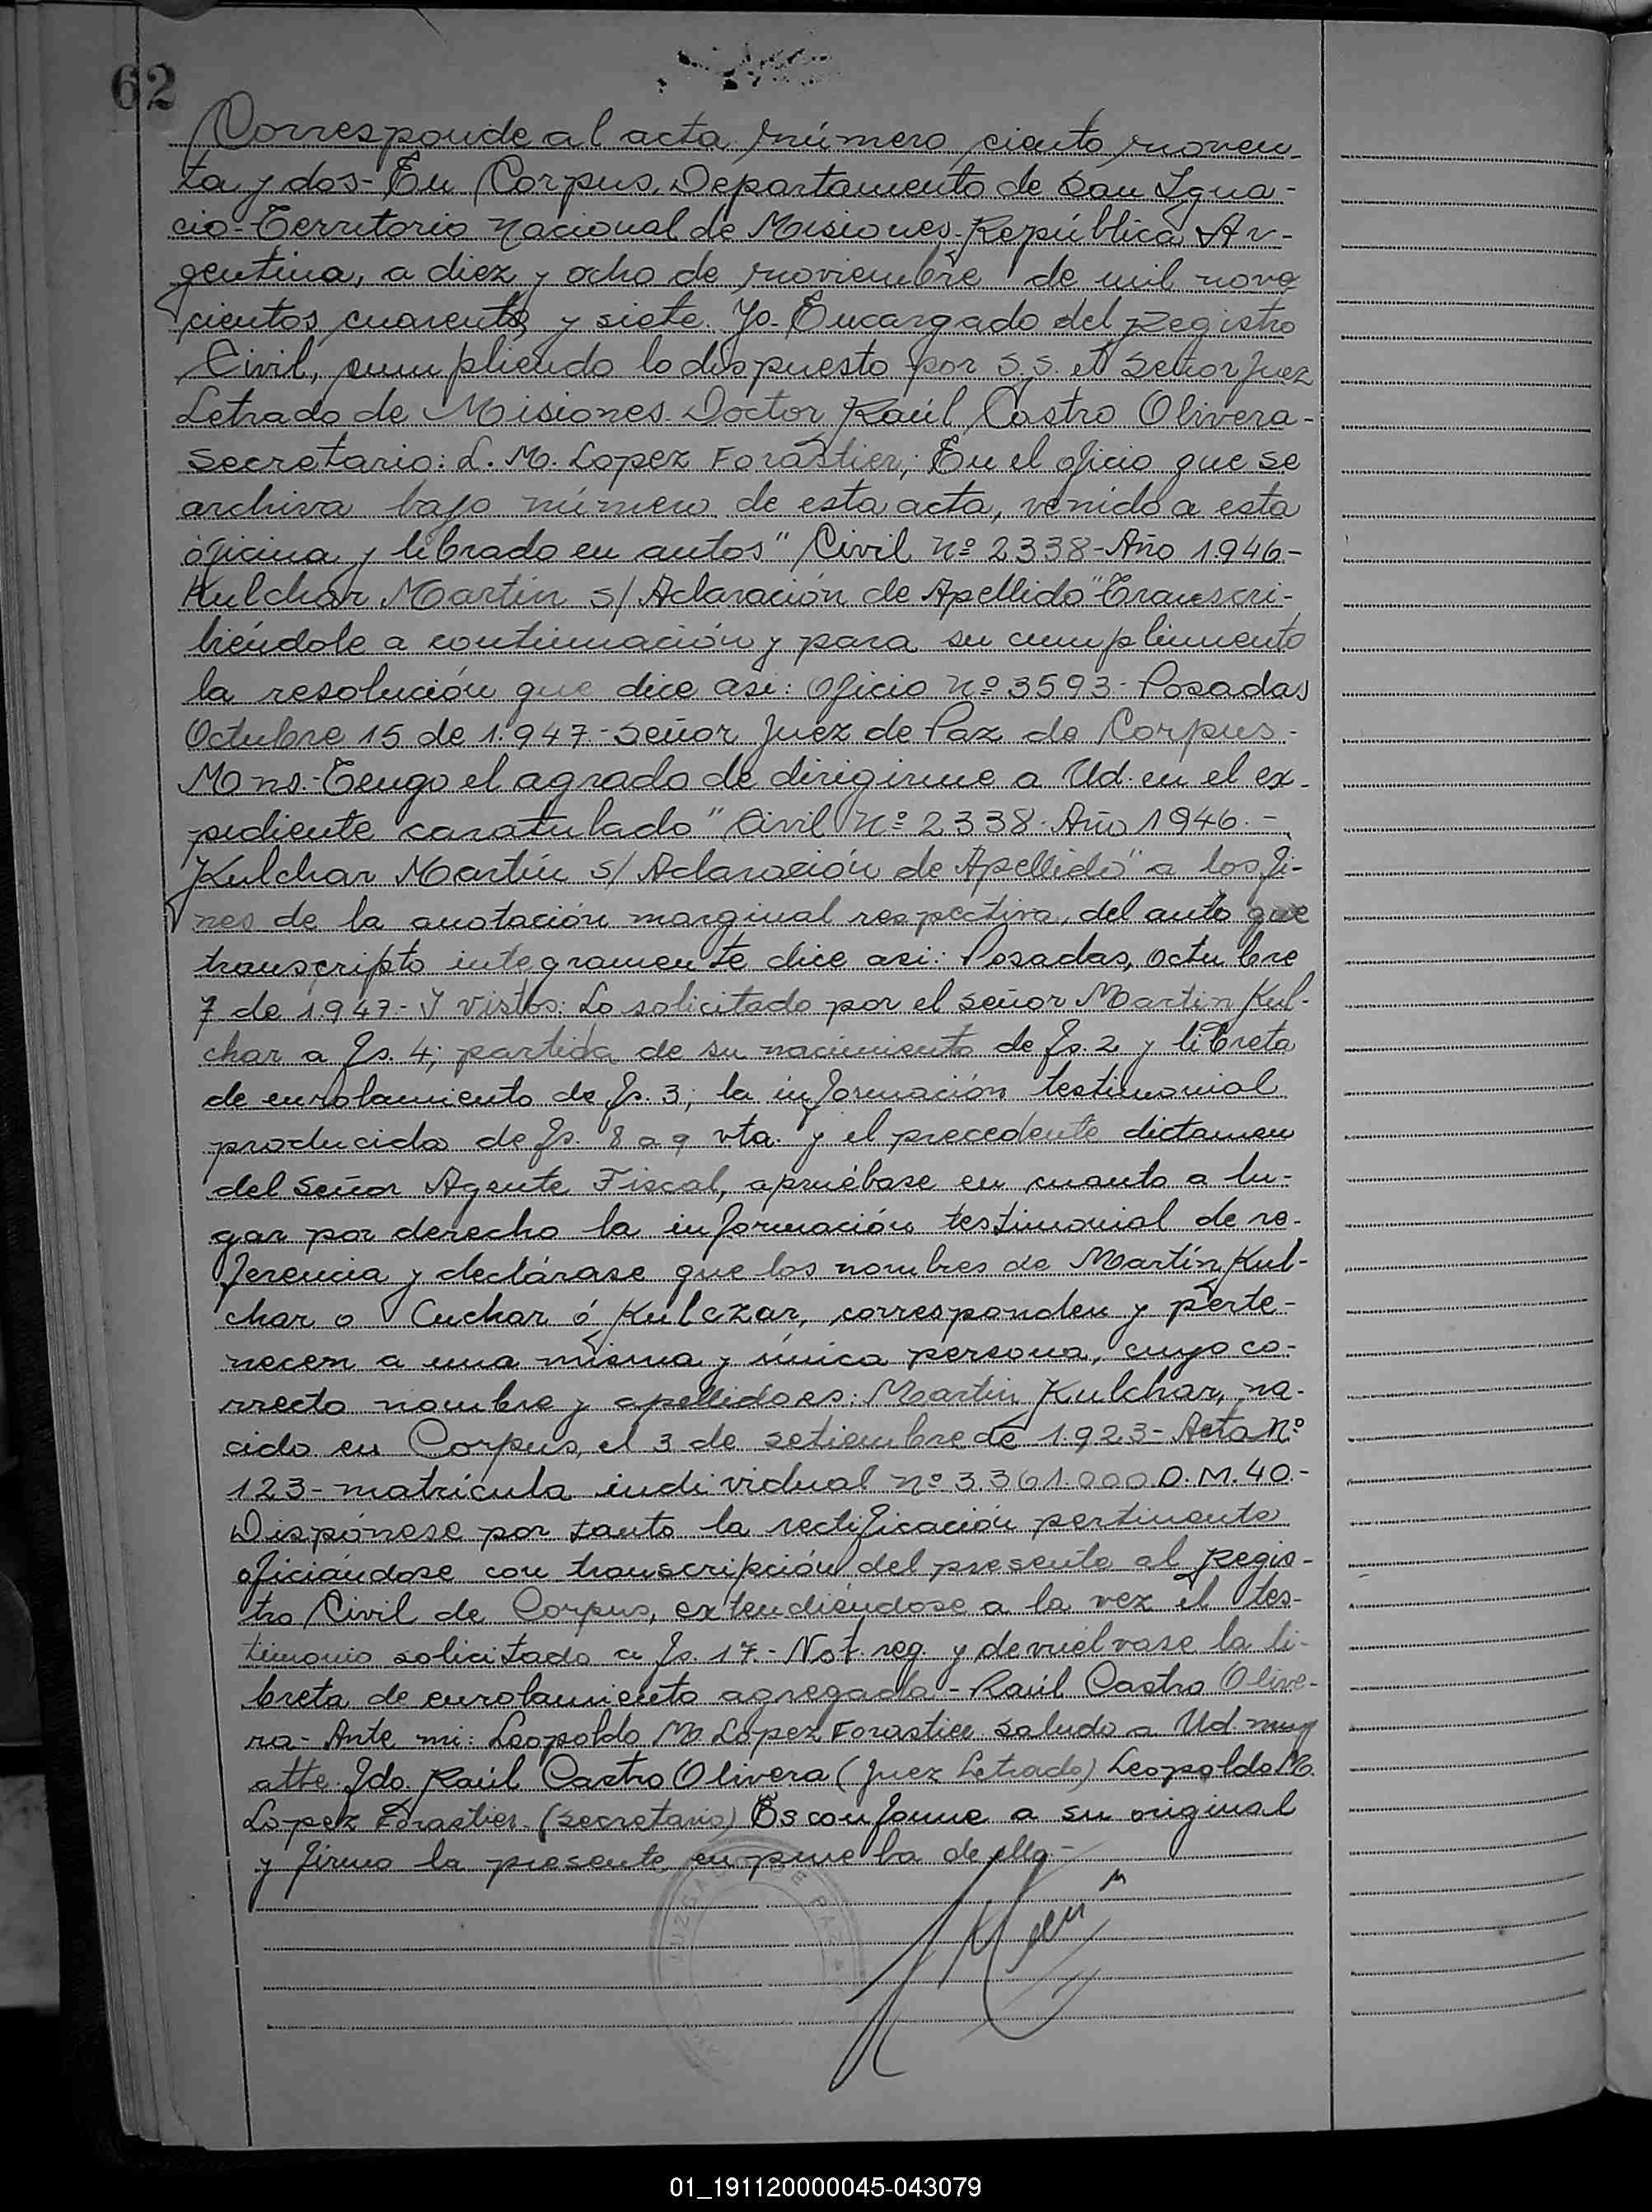 62
Corresponde al acta número ciento noven-
ta y dos- En Corpus, Departamento de San Igna-
cio- Territorio Nacional de Misiones- República Ar-
gentina, a diez y ocho de noviembre de mil nove
cientos cuarenta y siete. Yo- Encargado del Registro
Civil, cumpliendo lo dispuesto por S.S. el Señor Juez
Letrado de Misiones- Doctor Raúl Castro Olivera-
Secretario: L. M. Lopez Forastier; En el oficio que se
archiva bajo número de esta acta, venido a esta
oficina y librado en autos "Civil Nº 2338- Año 1.946-
Kulchar Martín S/ Aclaración de Apellido" Transcri-
biéndole a continuación y para su cumplimento
la resolución que dice asi: Oficio Nº 3593- Posadas
Octubre 15 de 1.947.- Señor Juez de Paz de Corpus-
Mnes.- Tengo el agrado de dirigirme a Ud. en el ex-
pediente caratulado "Civil Nº 2338- Año 1946.-
Kulchar Martín S/ Aclaración de Apellido" a los fi-
nes de la anotación marginal respectiva, del auto que
transcripto integramente dice asi: Posadas, Octubre
7 de 1.947.- Y vistos: Lo solicitado por el señor Martin Kul-
char a fs. 4; partida de su nacimiento de fs. 2 y libreta
de enrolamiento de fs. 3; la información testimonial
producida de fs. 8 a 9 vta. y el precedente dictamen
del Señor Agente Fiscal, apruébase en cuanto a lu-
gar por derecho la información testimonial de re-
ferencia y declárase que los nombres de Martín Kul-
char o Cuchar ó Kulczar, corresponden y perte-
necen a una misma y única persona, cuyo co-
rrecto nombre y apellido es: Martin Kulchar, na-
cido en Corpus, el 3 de setiembre de 1.923- Acta Nº
123- matrícula individual nº 3.361.000 D.M.40.-
Dispónese por tanto la rectificación pertinente
oficiándose con transcripción del presente al Regis-
tro Civil de Corpus, extendiéndose a la vez el tes-
timonio solicitado a fs. 17.- Not. reg. y devuélvase la li-
breta de enrolamiento agregada- Raúl Castro Olive-
ra- Ante mi: Leopoldo M. Lopez Forastier. Saludo a Ud. muy
atte. Fdo. Raúl Castro Olivera (Juez Letrado) Leopoldo M.
Lopez Forastier. (Secretario) Es conforme a su original
y firmo la presente en prueba de ello.-
JUZGADO DE PAZ
01_191120000045-043079